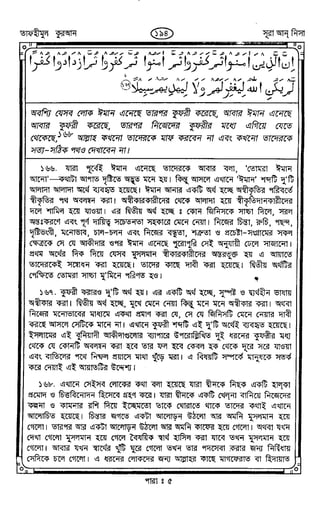 তাফহীমুল কুরআন
১৯৪
সূরা আন্ নিসা
إِنَّ الَّذِينَ آمَنُوا ثُمَّ كَفَرُوا ثُمَّ آمَنُوا ثُمَّ كَفَرُوا ثُمَّ ازْدَادُوا كُفْرًا
لَّمْ يَكُنِ اللَّهُ لِيَغْفِرَ لَهُمْ وَلَا لِيَهْدِيَهُمْ سَبِيلًا
অবশ্যি যেসব লোক ঈমান এনেছে তারপর কুফরী করেছে, আবার ঈমান এনেছে
আবার কুফরী করেছে, তারপর নিজেদের কুফরীর মধ্যে এগিয়ে যেতে
থেকেছে,১৬৮ আল্লাহ কখনো তাদেরকে মাফ করবেন না এবং কখনো তাদেরকে
সত্য-সঠিক পথও দেখাবেন না।
১৬৬. যারা পূর্বেই ঈমান এনেছে তাদেরকে আবার বলা, 'তোমরা ঈমান
আনো'—কথাটা আপাত দৃষ্টিতে অদ্ভুত মনে হয়। কিন্তু আসলে এখানে 'ঈমান' শব্দটি দু'টি
আলাদা আলাদা অর্থে ব্যবহৃত হয়েছে। ঈমান আনার একটি অর্থ হচ্ছে অস্বীকৃতির পরিবর্তে
স্বীকৃতির পথ অবলম্বন করা। অস্বীকারকারীদের থেকে আলাদা হয়ে স্বীকৃতিদানকারীদের
দলে শামিল হয়ে যাওয়া। এর দ্বিতীয় অর্থ হচ্ছে ঃ কোন জিনিসকে সাচ্চা দিলে, সরল
অন্তঃকরণে এবং পূর্ণ দায়িত্ব সচেতনতা সহকারে মেনে নেয়া। নিজের চিন্তা, রুচি, পছন্দ,
দৃষ্টিভংগী, মনোভাব, চাল-চলন এবং নিজের বন্ধুতা, শত্রুতা ও প্রচেষ্টা-সংগ্রামের সকল
ক্ষেত্রকে সে যে আকীদার ওপর ঈমান এনেছে পুরোপুরি সেই অনুযায়ী ঢেলে সাজানো।
প্রথম অর্থের দিক দিয়ে যেসব মুসলমান স্বীকারকারীদের অন্তরভুক্ত হয় এ আয়াতে
তাদেরকেই সম্বোধন করা হয়েছে। তাদের কাছে দাবী করা হয়েছে। দ্বিতীয় অর্থটির
প্রেক্ষিতে তোমরা সাচ্চা মু'মিনে পরিণত হও।
১৬৭. কুফরী করারও দু'টি অর্থ হয়। এর একটি অর্থ হচ্ছে, সুস্পষ্ট ও দ্ব্যর্থহীন ভাষায়
অস্বীকার করা। দ্বিতীয় অর্থ হচ্ছে, মুখে মেনে নেয়া কিন্তু মনে মনে অস্বীকার করা। অথবা
নিজের মনোভাবের মাধ্যমে একথা প্রমাণ করা যে, সে যে জিনিসটি মেনে নেয়ার দাবী
করছে আসলে সেটিকে মানে না। এখানে কুফরী শব্দটি এই দু'টি অর্থেই ব্যবহৃত হয়েছে।
ইসলামের এই বুনিয়াদী আকীদাগুলোর ব্যাপারে উপরোল্লিখিত দুই ধরনের কুফরীর মধ্য
থেকে যে কোনটি অবলম্বন করা হবে তার ফল হবে কেবল হক থেকে দূরে সরে যাওয়া
এবং বাতিলের পথে নিষ্ফল প্রয়াসে মাথা খুঁড়ে মরা। এ বিষয়টি সম্পর্কে মানুষকে সতর্ক
করে দেয়াই এই আয়াতটির উদ্দেশ্য।
১৬৮. এখানে সেইসব লোকের কথা বলা হয়েছে যারা দীনকে নিছক একটি হাল্কা
প্রমোদ ও চিত্তবিনোদন হিসেবে গ্রহণ করে। যারা দীনকে একটি খেলনা বানিয়ে নিজেদের
কল্পনা ও কামনার রশি দিয়ে ইচ্ছেমতো তাকে খেলাতে থাকে তাদের কথাই এখানে
আলোচিত হয়েছে। চিন্তার জগতে একটা আলোড়ন উঠলো আর অমনি মুসলমান হয়ে
গেলো। তারপর আর একটা আলোড়ন উঠলো আর অমনি কাফের হয়ে গেলো। অথবা যখন
দেখা গেলো মুসলমান হয়ে গেলে বৈষয়িক স্বার্থ হাসিল করা যাবে তখন মুসলমান হয়ে
গেলো। আবার যখন স্বার্থের খুঁটি ঘুরে গেলো তখন তার পদসেবা করার জন্য নির্দ্বিধায়
সেদিকে চলে গেলো। এ ধরনের লোকদের জন্য আল্লাহর কাছে মাগফেরাত বা হিদায়াত
পারা ঃ ৫